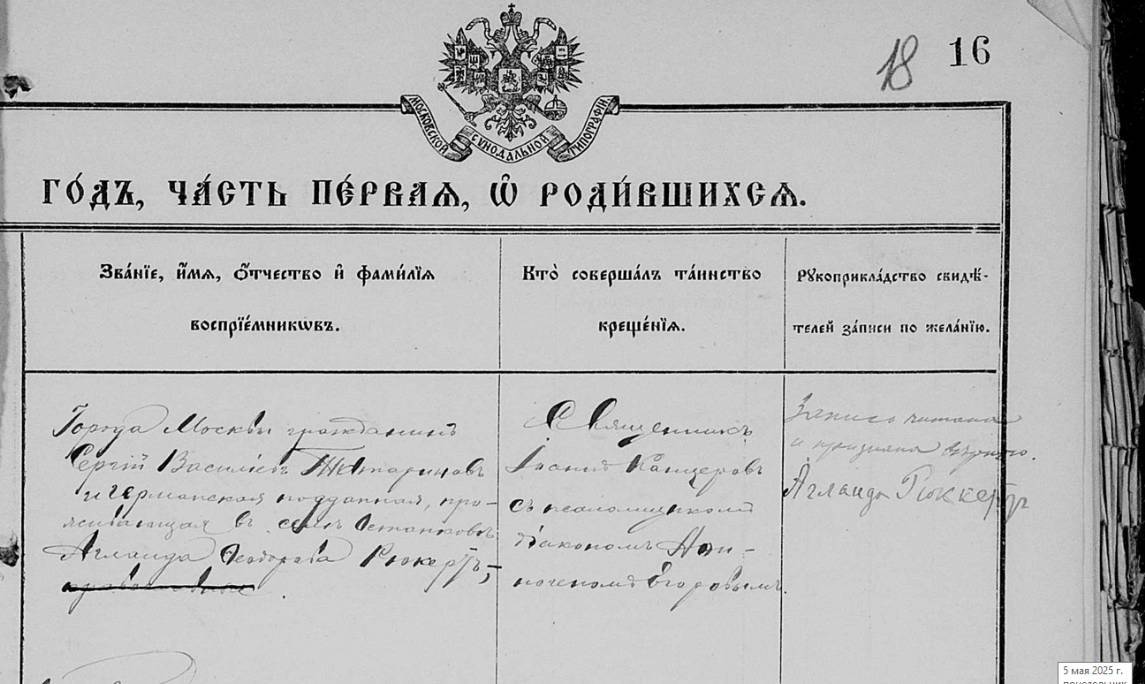 18 16
МОСКОВСКОЙ СѴНОДАЛЬНОЙ ТИПОГРАФІИ
ГО́ДЪ, ЧА́СТЬ ПЕ́РВАѦ, Ѽ РОДИ́ВШИХСѦ.
Зва́нїе, и҆́мѧ, ѻ҆́тчество и҆ фами́лїѧ
воспрїе́мникѡвъ.
Кто̀ соверша́лъ та́инство
креще́нїѧ.
Рꙋкоприкла́дство свидѣ́-
телей за́писи по жела́нїю.
Города Москвы гражданинъ
Сергій Васильевъ Татариновъ
и германская подданная, про-
живающая въ селѣ Останковѣ
Аглаида Теодорова Рюкертъ,
православные.
Священникъ
Іоаннъ Канцеровъ
съ псаломщикомъ
діакономъ
Егоровымъ.
Запись читана
и признана вѣрною.
Аглаида Рюккертъ
5 мая 2025 г.
понедельник